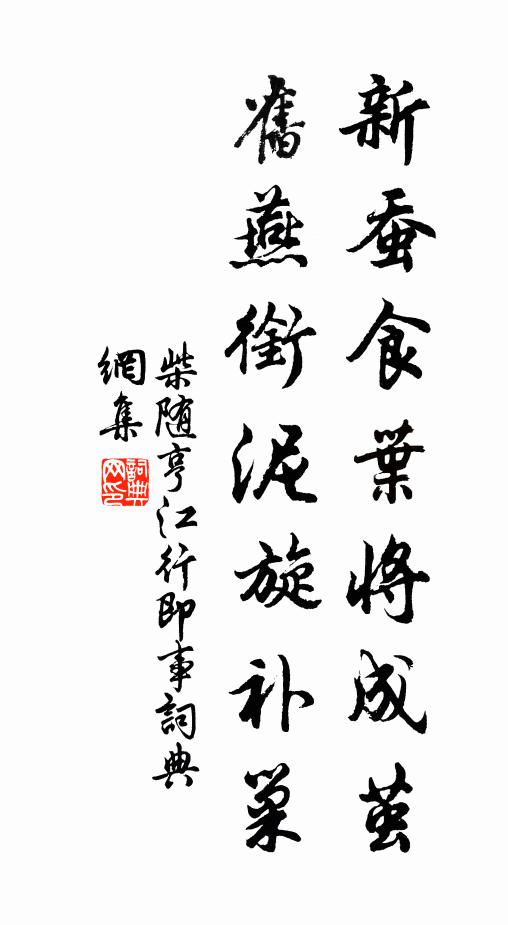 新蚕食葉将成茧
舊燕銜泥旋补巢
柴随亨江行即事詞典
網集
詞典網印